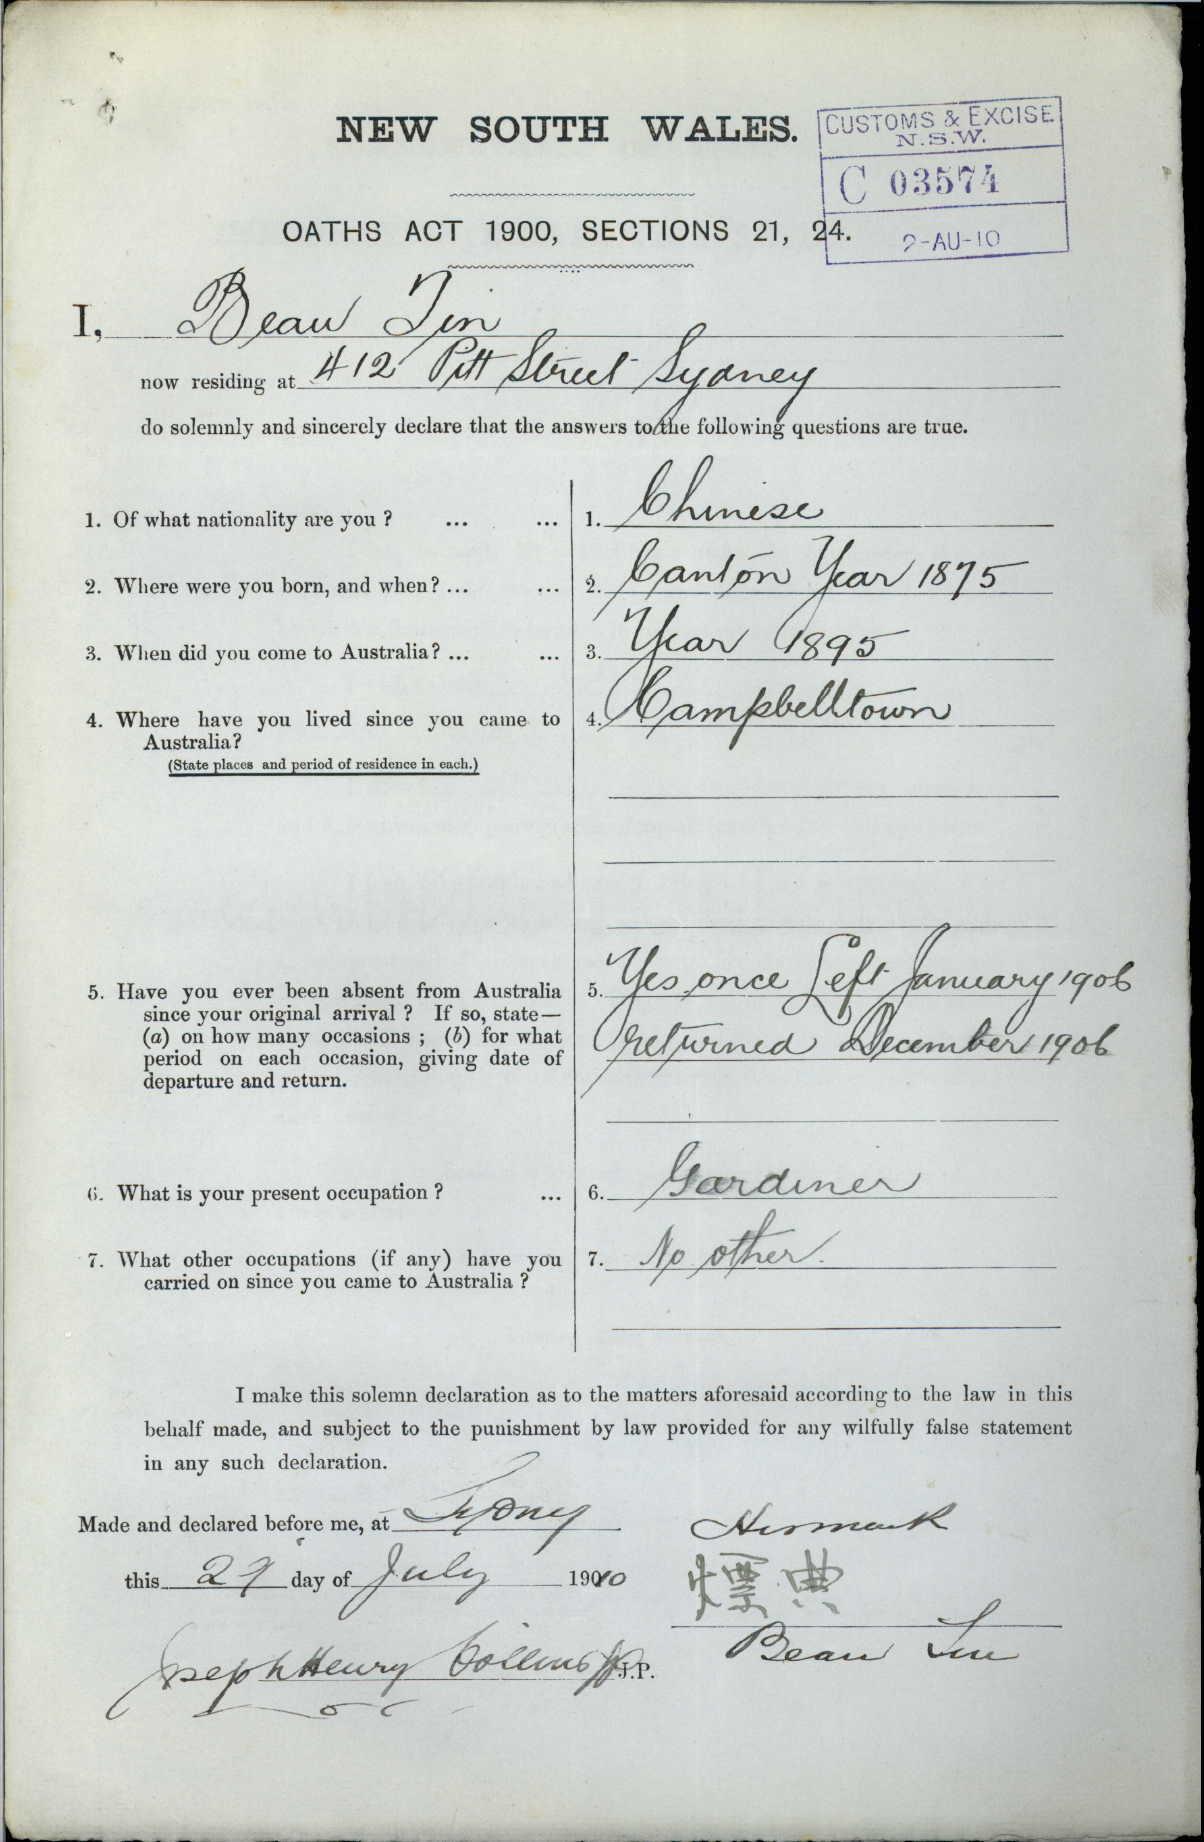 NEW SOUTH WALES.
CUSTOMS & EXCISE
N.S.W.
C 03574
2-AU-10
OATHS ACT 1900, SECTIONS 21, 24.
I, Beau Tin
now residing at 412 Pitt Street Sydney
do solemnly and sincerely declare that the answers to the following questions are true.
1. Of what nationality are you ? ... ... 1. Chinese
2. Where were you born, and when? ... ... 2. Canton Year 1875
3. When did you come to Australia? ... ... 3. Year 1895
4. Where have you lived since you came to 4. Campbelltown
Australia?
(State places and period of residence in each.)
5. Have you ever been absent from Australia 5. Yes once Left January 1906
since your original arrival ? If so, state—
(a) on how many occasions ; (b) for what returned December 1906
period on each occasion, giving date of
departure and return.
6. What is your present occupation ? ... 6. Gardiner
7. What other occupations (if any) have you 7. No other.
carried on since you came to Australia ?
I make this solemn declaration as to the matters aforesaid according to the law in this
behalf made, and subject to the punishment by law provided for any wilfully false statement
in any such declaration.
Made and declared before me, at Sydney His mark
this 29 day of July 1910 典
Joseph Henry Collins J.P. Beau Tin